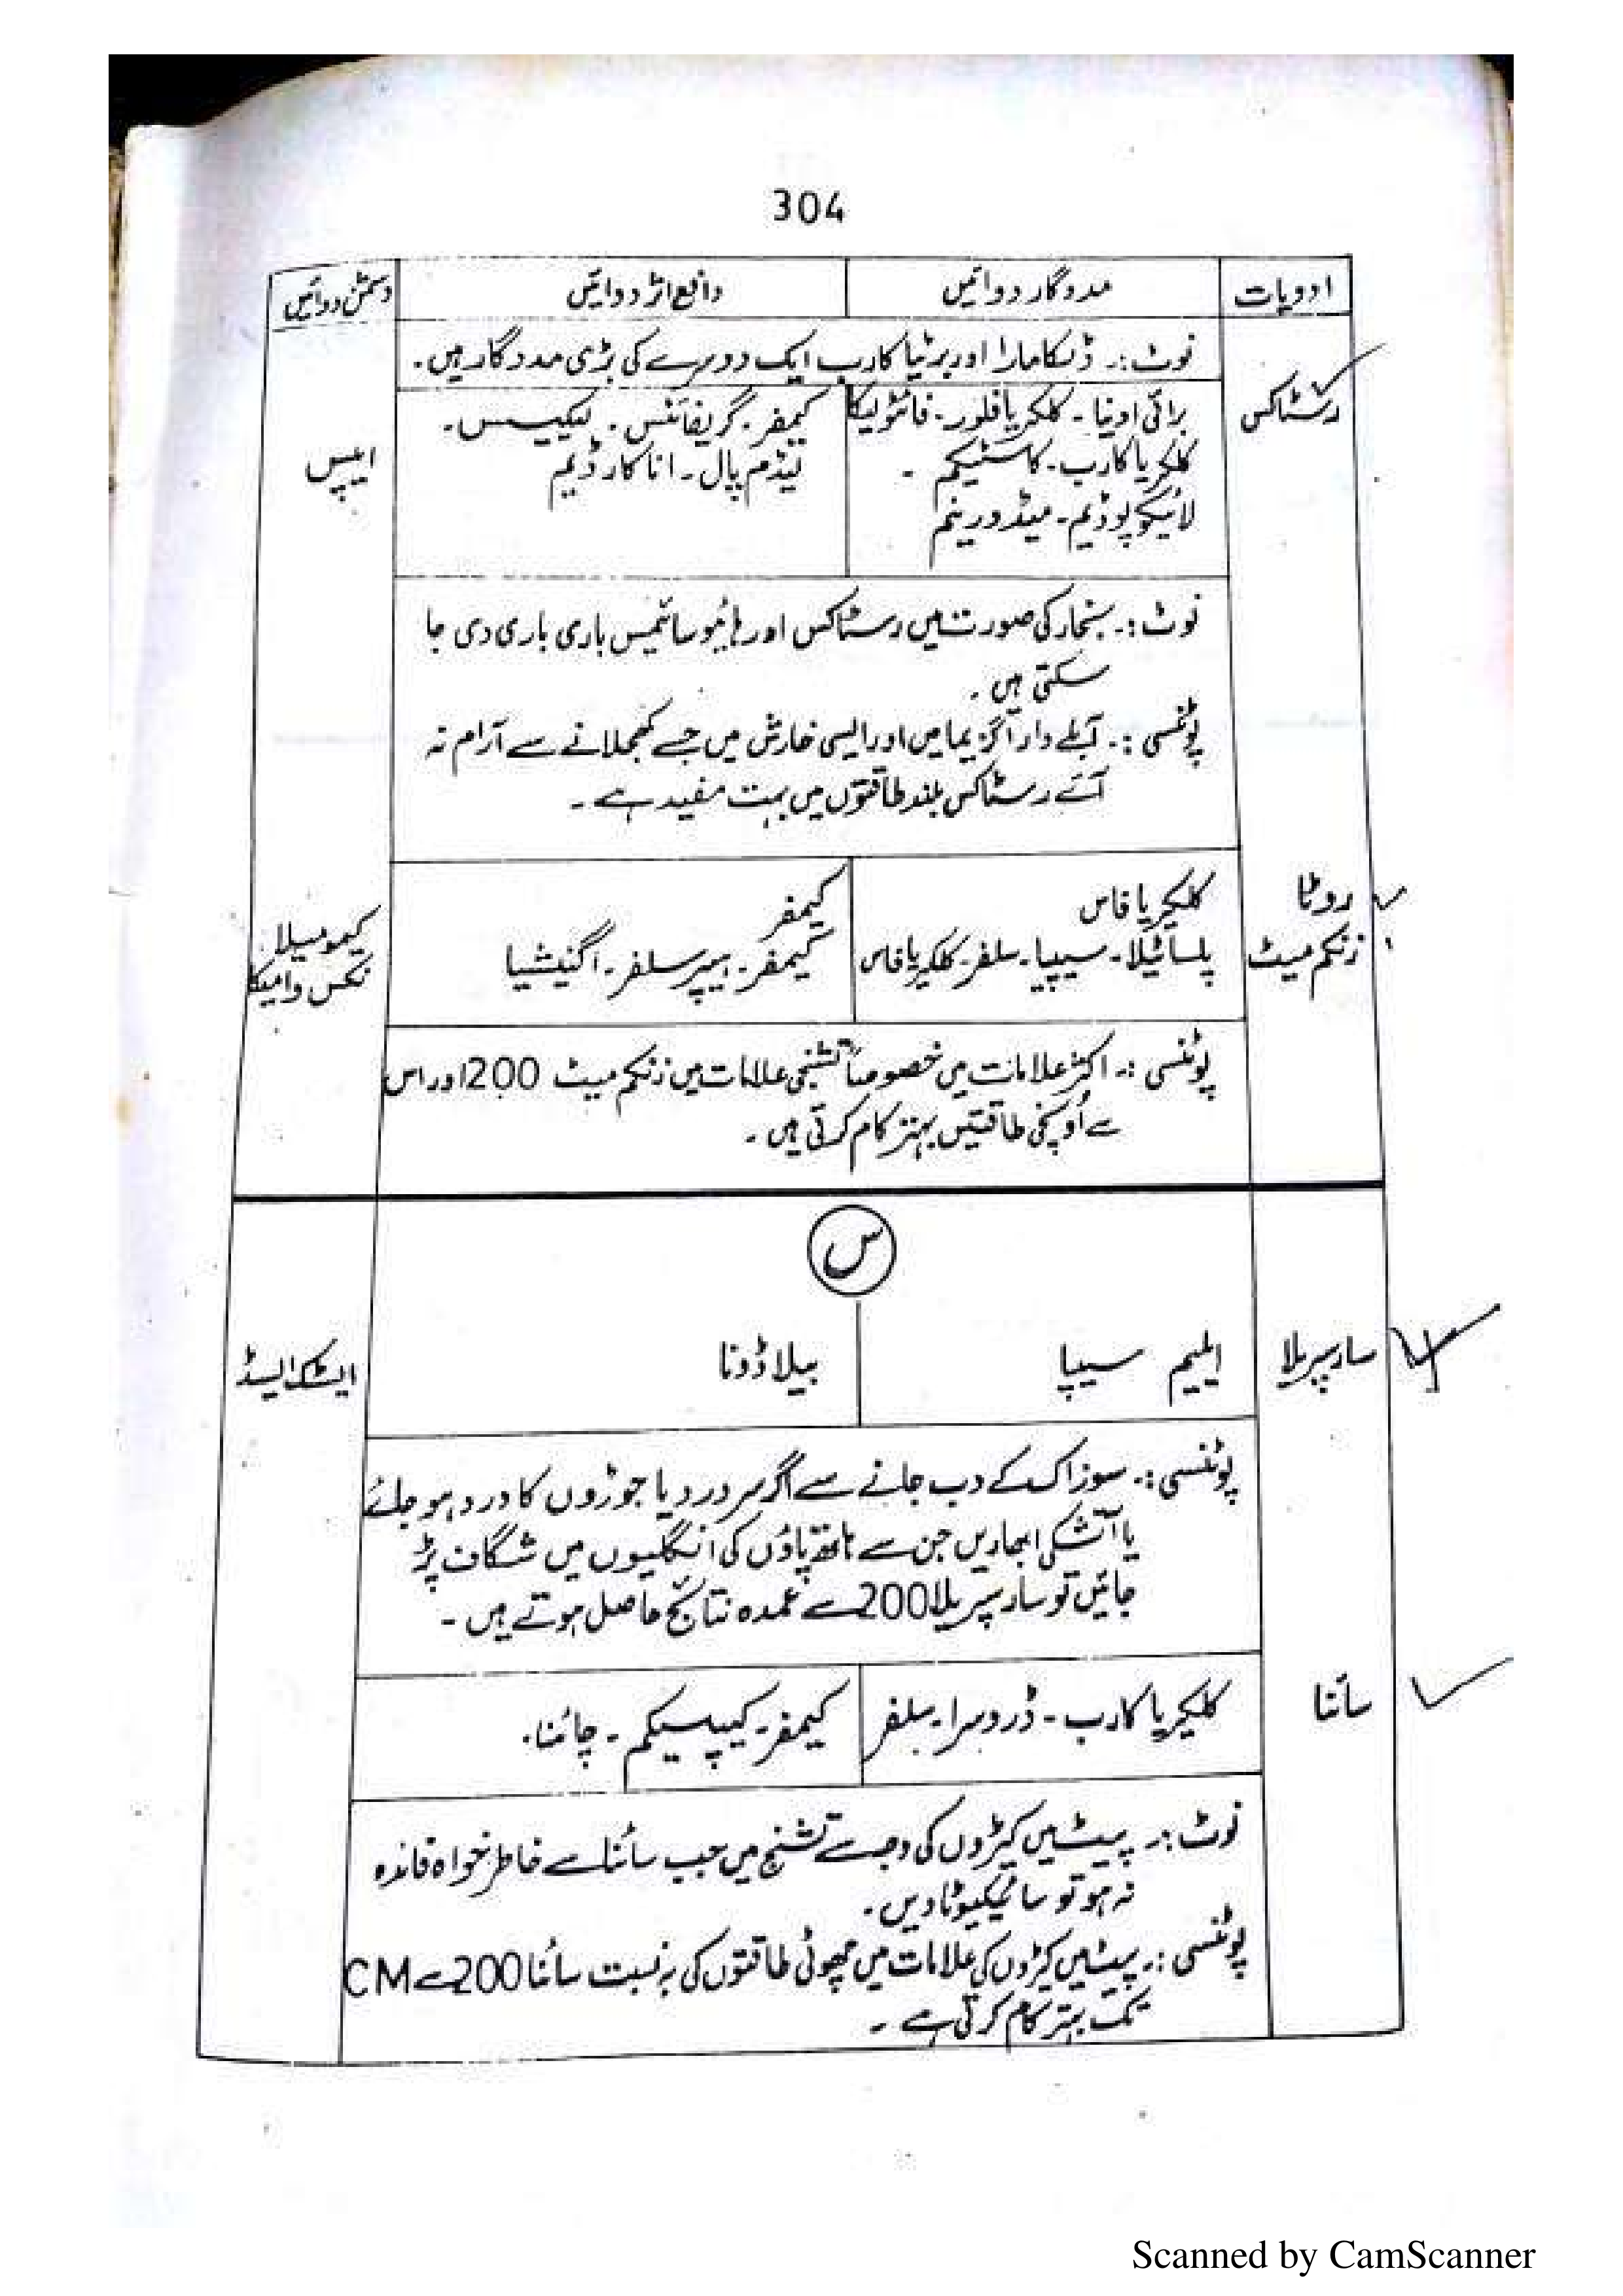 304
ادویات مددگار دوائیں دافع اثر دوائیں دشمن دوائیں
نوٹ:۔ ڈلکامارا اور برٹیا کارب ایک دوسرے کی بڑی مددگار ہیں۔
رسٹاکس
برائی اونیا۔ کلکیریا فلور۔ فائٹولیکا
کلکیریا کارب۔ کاسٹیکم ۔
لائیکوپوڈیم۔ میڈورینم
کیمفر۔ گریفائٹس۔ لیکیسس۔
لیڈم پال۔ اناکارڈیم
ایپس
نوٹ:۔ بخار کی صورت میں رسٹاکس اور ہائیوسائمس باری باری دی جا
سکتی ہیں۔
پوٹنسی:۔ آبلے دار اگزیما میں اور ایسی خارش میں جسے کھجلانے سے آرام نہ
آئے رسٹاکس بلند طاقتوں میں بہت مفید ہے۔
روٹا کلکیریا فاس کیمفر
زنکم میٹ پلساٹیلا۔ سیپیا۔ سلفر۔ کلکیریا فاس کیمفر۔ ہیپر سلفر۔ اگنیشیا
کیمومیلا
نکس وامیکا
پوٹنسی:۔ اکثر علامات میں خصوصاً تشنجی علامات میں زنکم میٹ 200 اور اس
سے اُونچی طاقتیں بہتر کام کرتی ہیں۔
س
سارسپریلا ایلیم سیپا بیلاڈونا ایسٹک ایسڈ
پوٹنسی:۔ سوزاک کے دب جانے سے اگر سر درد یا جوڑوں کا درد ہو جائے
یا آتشکی ابھاریں جن سے ہاتھ پاؤں کی انگلیوں میں شگاف پڑ
جائیں تو سارسپریلا 200 سے عمدہ نتائج حاصل ہوتے ہیں۔
سائنا کلکیریا کارب۔ ڈروسرا۔ سلفر کیمفر۔ کیپسیکم ۔ چائنا۔
نوٹ:۔ پیٹ میں کیڑوں کی وجہ سے تشنج میں جب سائنا سے خاطر خواہ فائدہ
نہ ہو تو سائیکیوٹا دیں۔
پوٹنسی:۔ پیٹ میں کیڑوں کی علامات میں چھوٹی طاقتوں کی بہ نسبت سائنا 200 سے CM
تک بہتر کام کرتی ہے ۔
Scanned by CamScanner